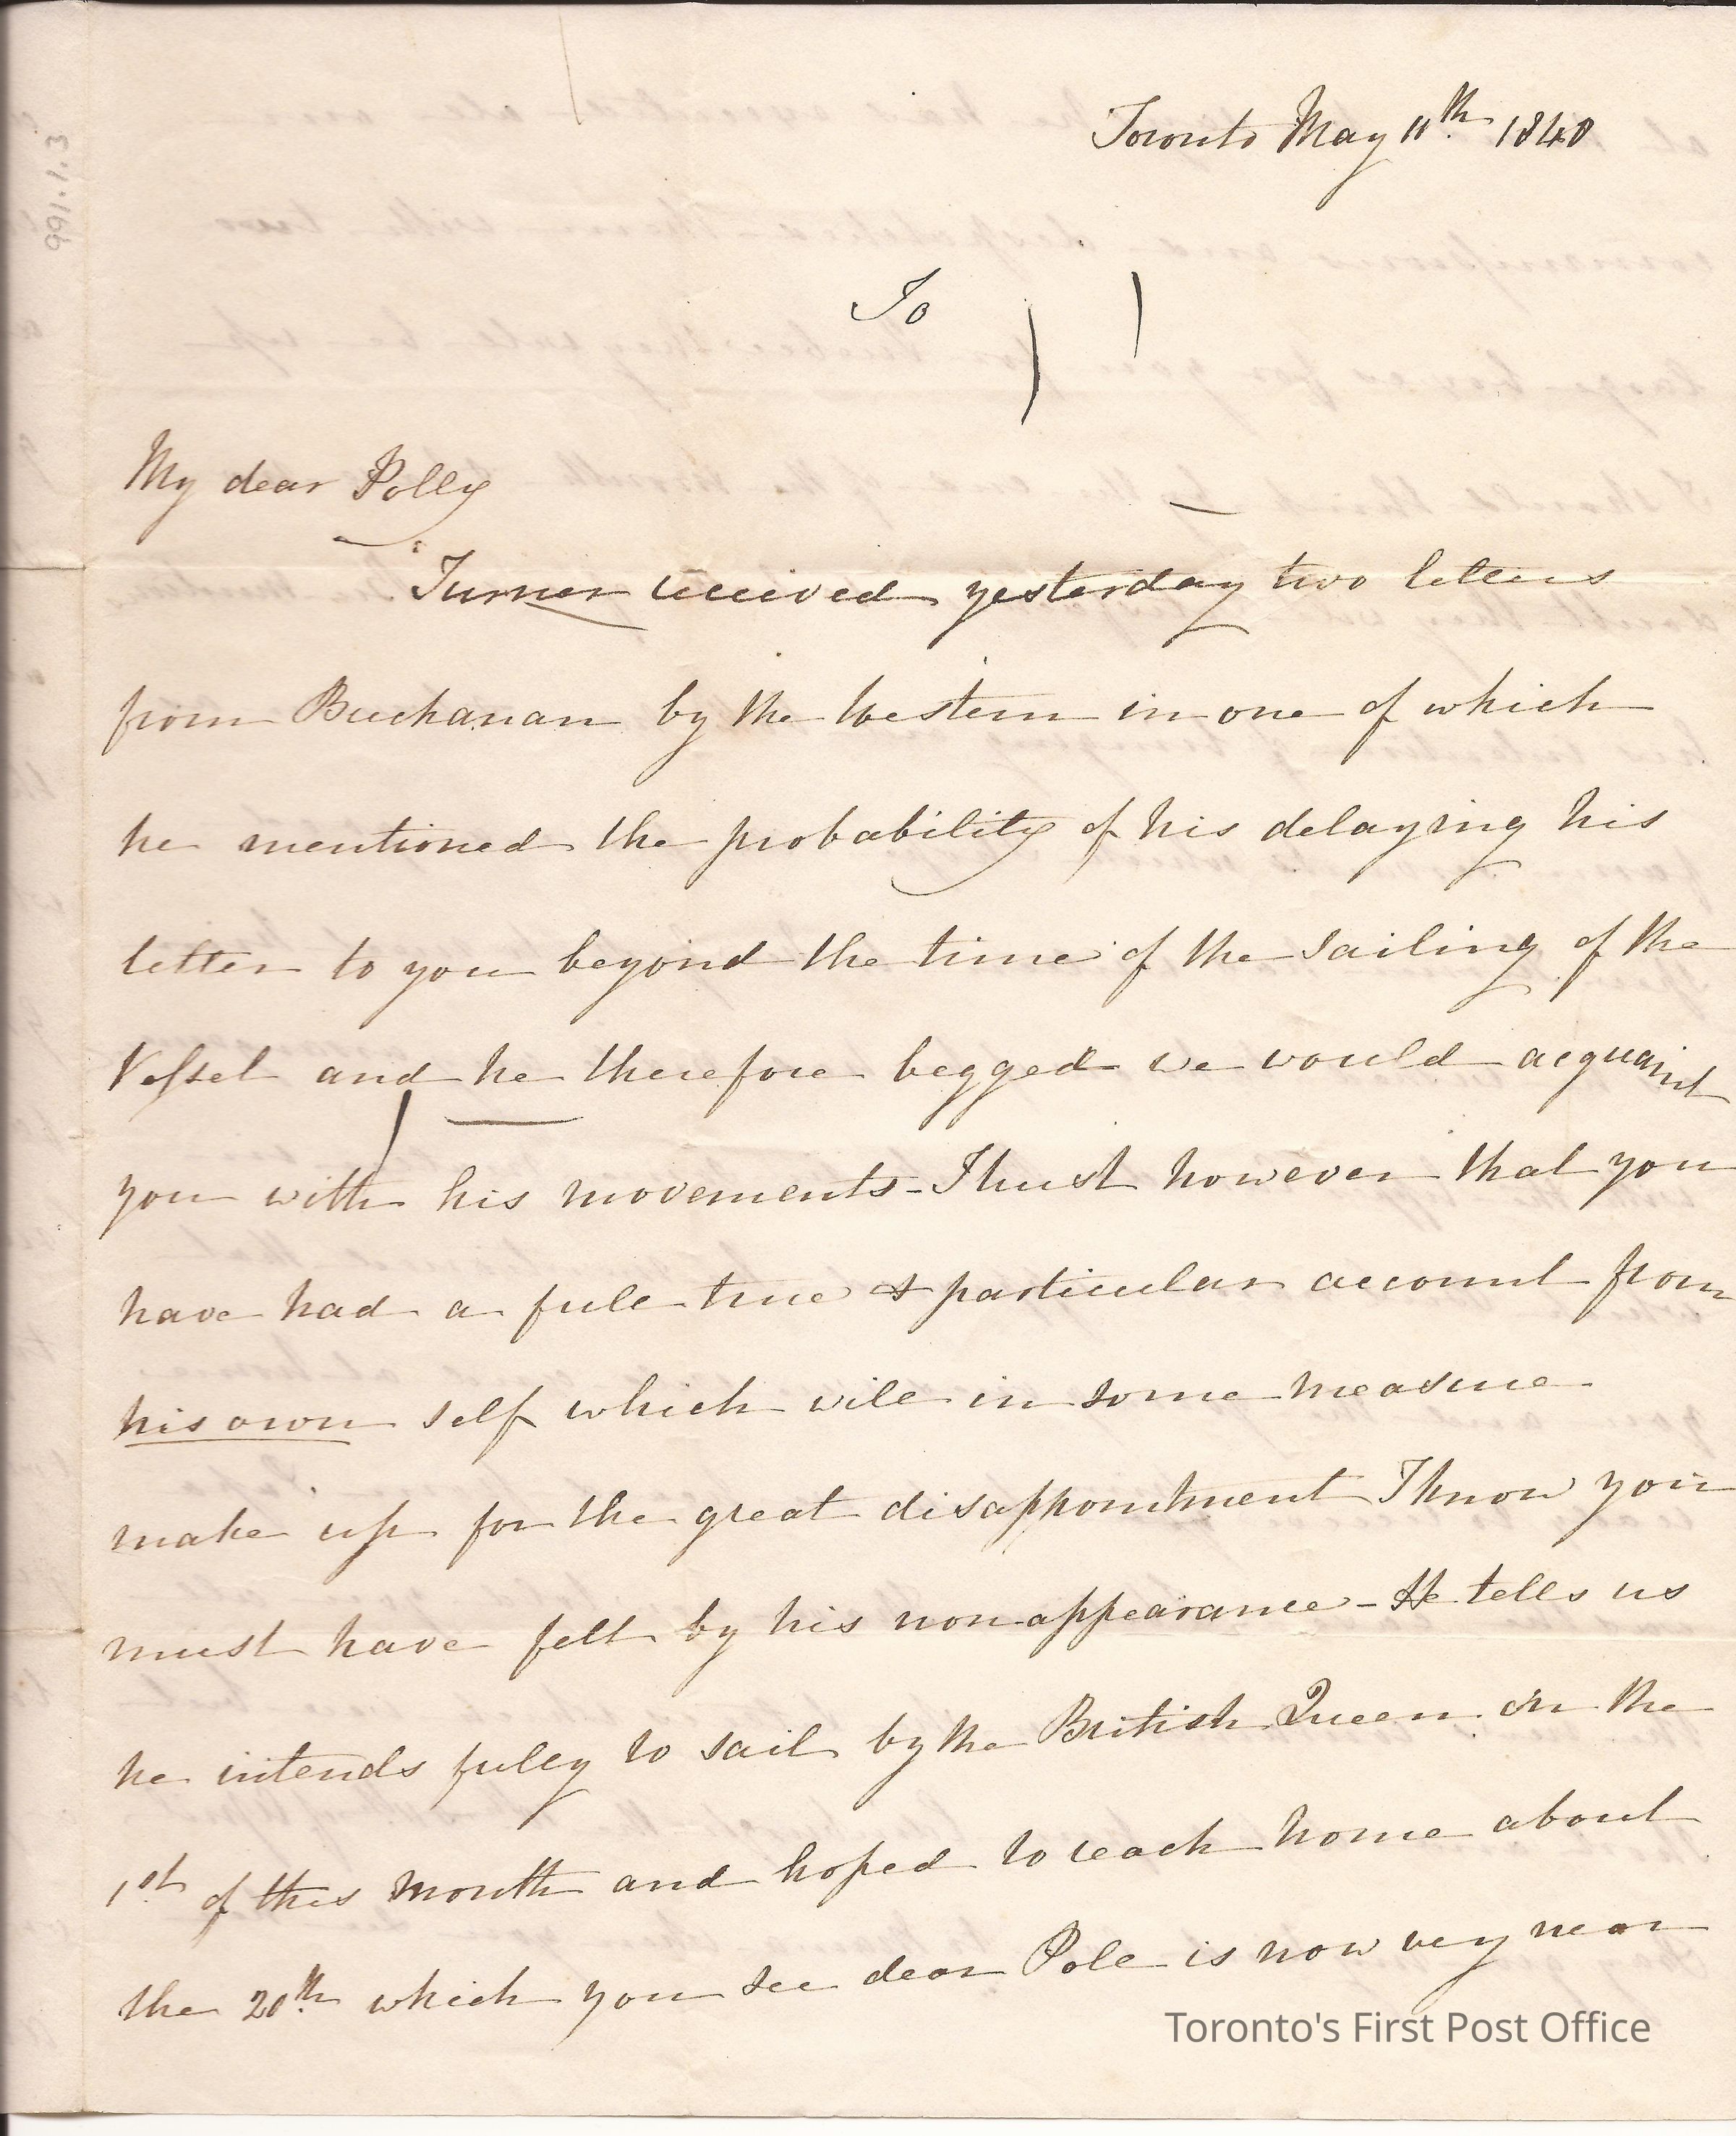 991.1.3
Toronto May 11th 1840
To
My dear Polly
Turner received yesterday two letters
from Buchanan by the Western in one of which
he mentioned the probability of his delaying his
letter to you beyond the time of the sailing of the
Vessel and he therefore begged we would acquaint
you with his movements - I trust however that you
have had a full true & particular account from
his own self which will in some measure
make up for the great disappointment I know you
must have felt by his non appearance - He tells us
he intends fully to sail by the British Queen on the
1st of this month and hoped to reach home about
the 20th which you see dear Pole is now very near
Toronto's First Post Office